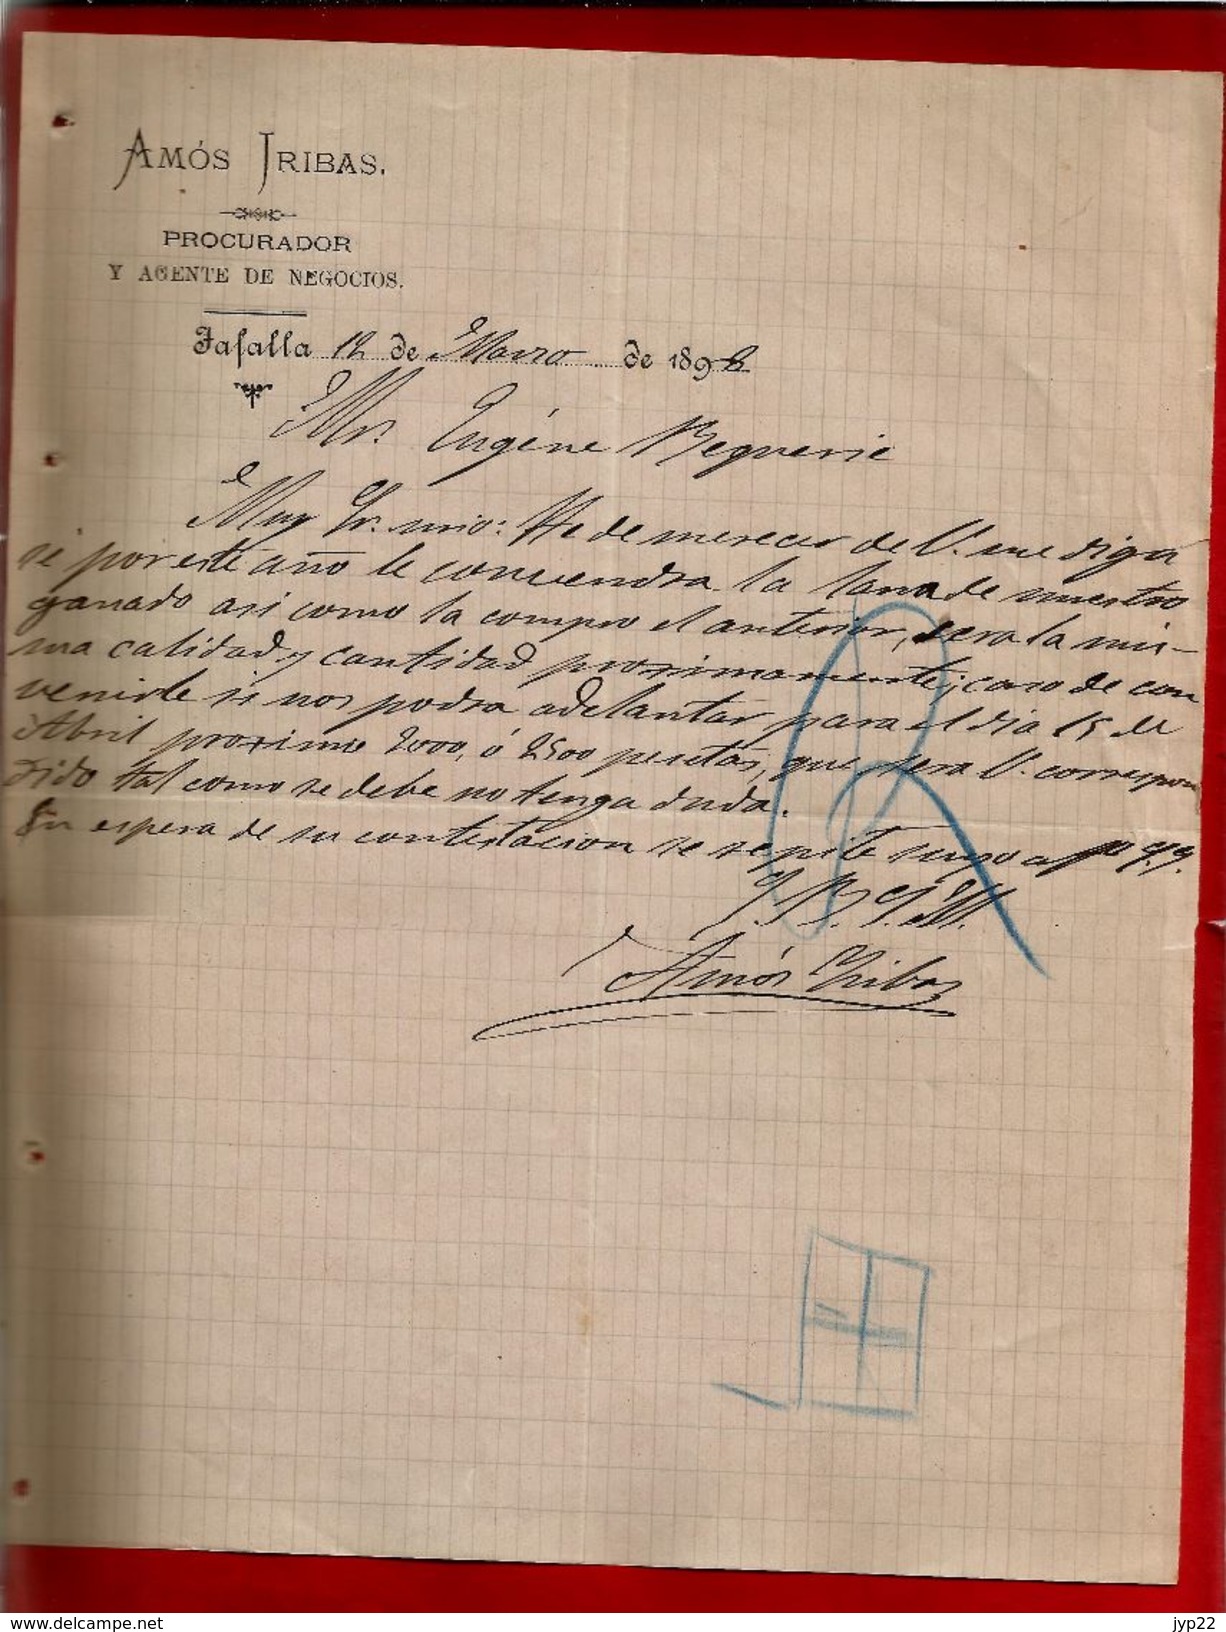 AMÓS IRIBAS.
PROCURADOR
Y AGENTE DE NEGOCIOS.
Tafalla 12 de Marzo de 1898
Mr. Eugéne Bequerie
Muy Sr. mio: He de merecer de V. me diga
si por este año le convendra la lana de nuestro
ganado asi como la compro el anterior, sera la mis-
ma calidad y cantidad proximamente; caso de con
venirle si nos podra adelantar para el dia 15 de
Abril proximo 2000, ó 2500 pesetas, que sera V. correspon
dido tal como se debe no tenga duda.
En espera de su contestacion se repite suyo af
S. B. S. M.
Amós Iribas
www.delcampe.net
jyp22